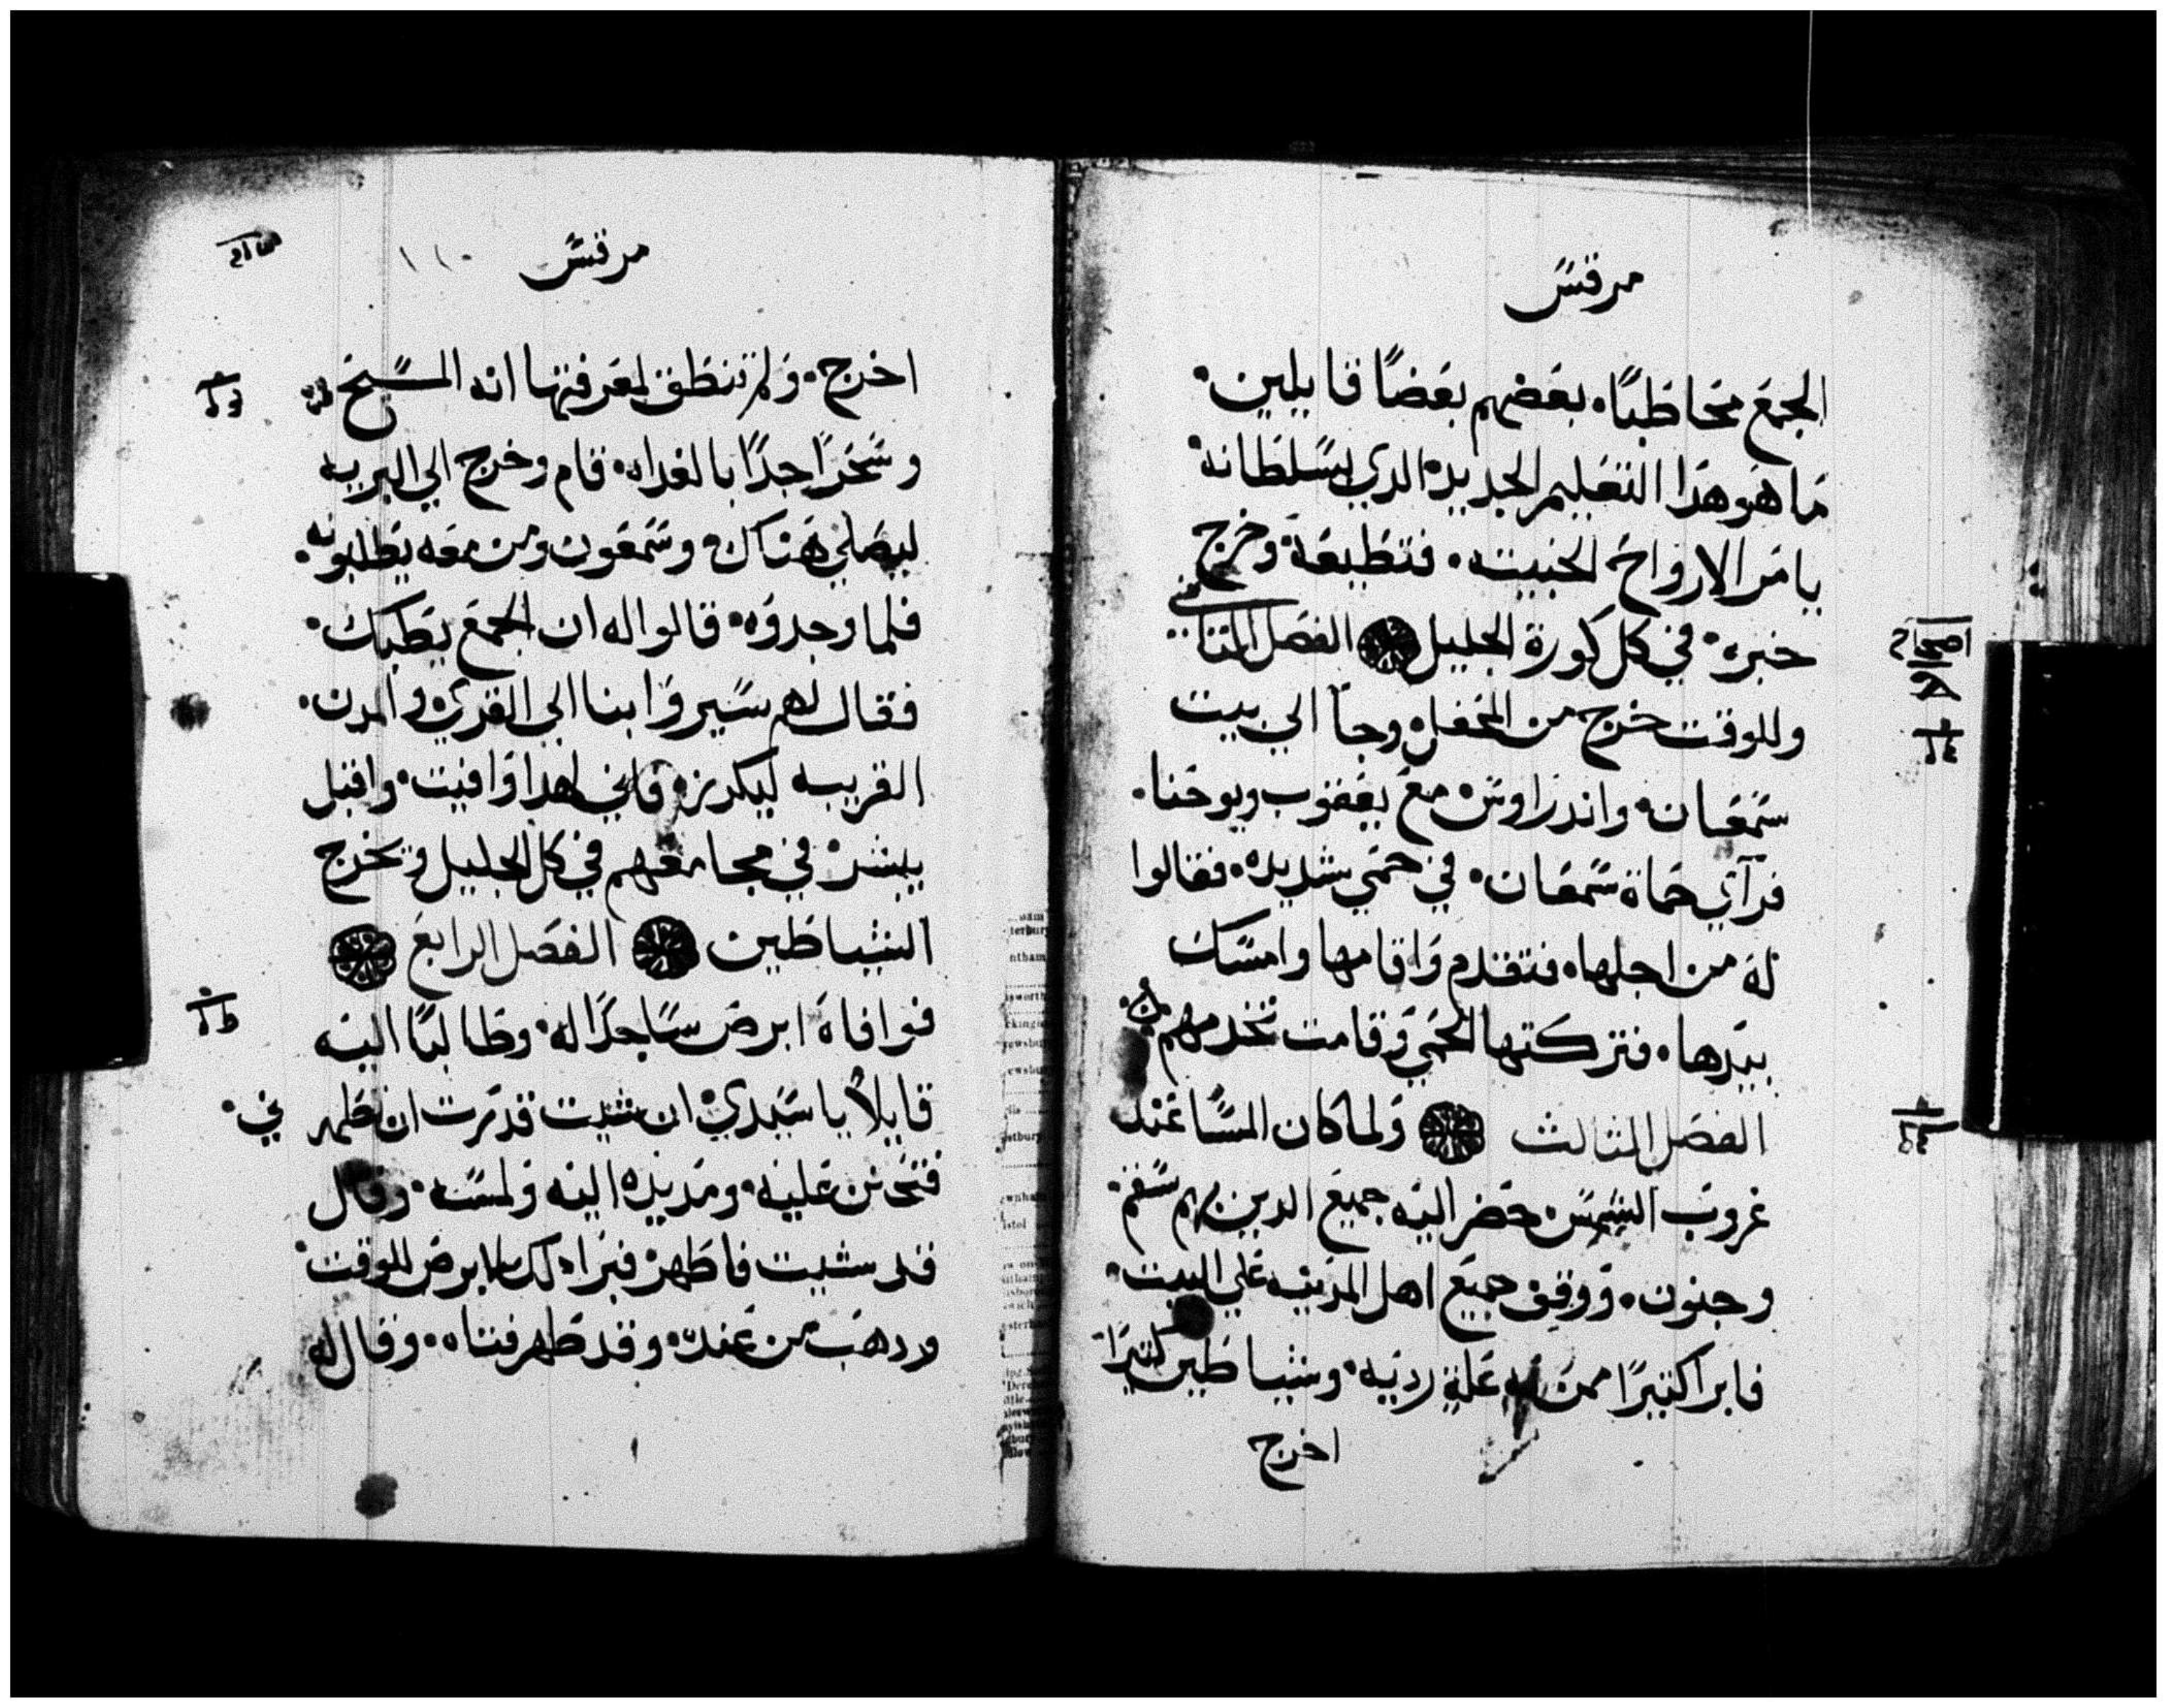 مرقس
الجمع مخاطبًا. بعضهم بعضًا قايلين.
ما هو هدا التعليم الجديد. الدي بسلطانه.
يامر الارواح الخبيته. فتطيعه. وخرج
خبره. في كل كورة الجليل الفصل التاني
وللوقت خرج من المحفل. وجآ الي بيت
سمعان. واندراوس. مع يعقوب ويوحنا.
فرآي حماة سمعان. في حمي شديده. فقالوا
له من اجلها. فتقدم واقامها وامسك
بيدها. فتركتها الحمي وقامت تخدمهم
الفصل التالت ولما كان المسا عند
غروب الشمس. حضر اليه جميع الدين بهم سقم.
وجنون. ووقف جميع اهل المدينه علي البيت.
فابرا كتيرًا ممن به علة رديه. وشياطين كتيرًا
اخرج
اصحاح
مرقس
١١٠
اخرج. ولم تنطق لمعرفتها انه المسيح
وسحرًا جدًا بالغداه. قام وخرج الي البريه
ليصلي هناك. وسمعون ومن معه يطلبونه.
فلما وجدوه. قالوا له ان الجمع يطلبك.
فقال لهم سيروا بنا الي القري. والمدن.
القريبه ليكرز. فاني لهدا وافيت. واقبل
يبشر. في مجامعهم في كل الجليل ويخرج
الشياطين الفصل الرابع
فوافاه ابرص ساجدًا له. وطالبًا اليه
قايلاً يا سيدي. ان شيت قدرت ان تطهرني.
فتحنن عليه. ومد يده اليه ولمسه. وقال
قد شيت فاطهر. فبرا دلك الابرص للوقت.
ودهب من عنده. وقد طهر فتاه. وقال له